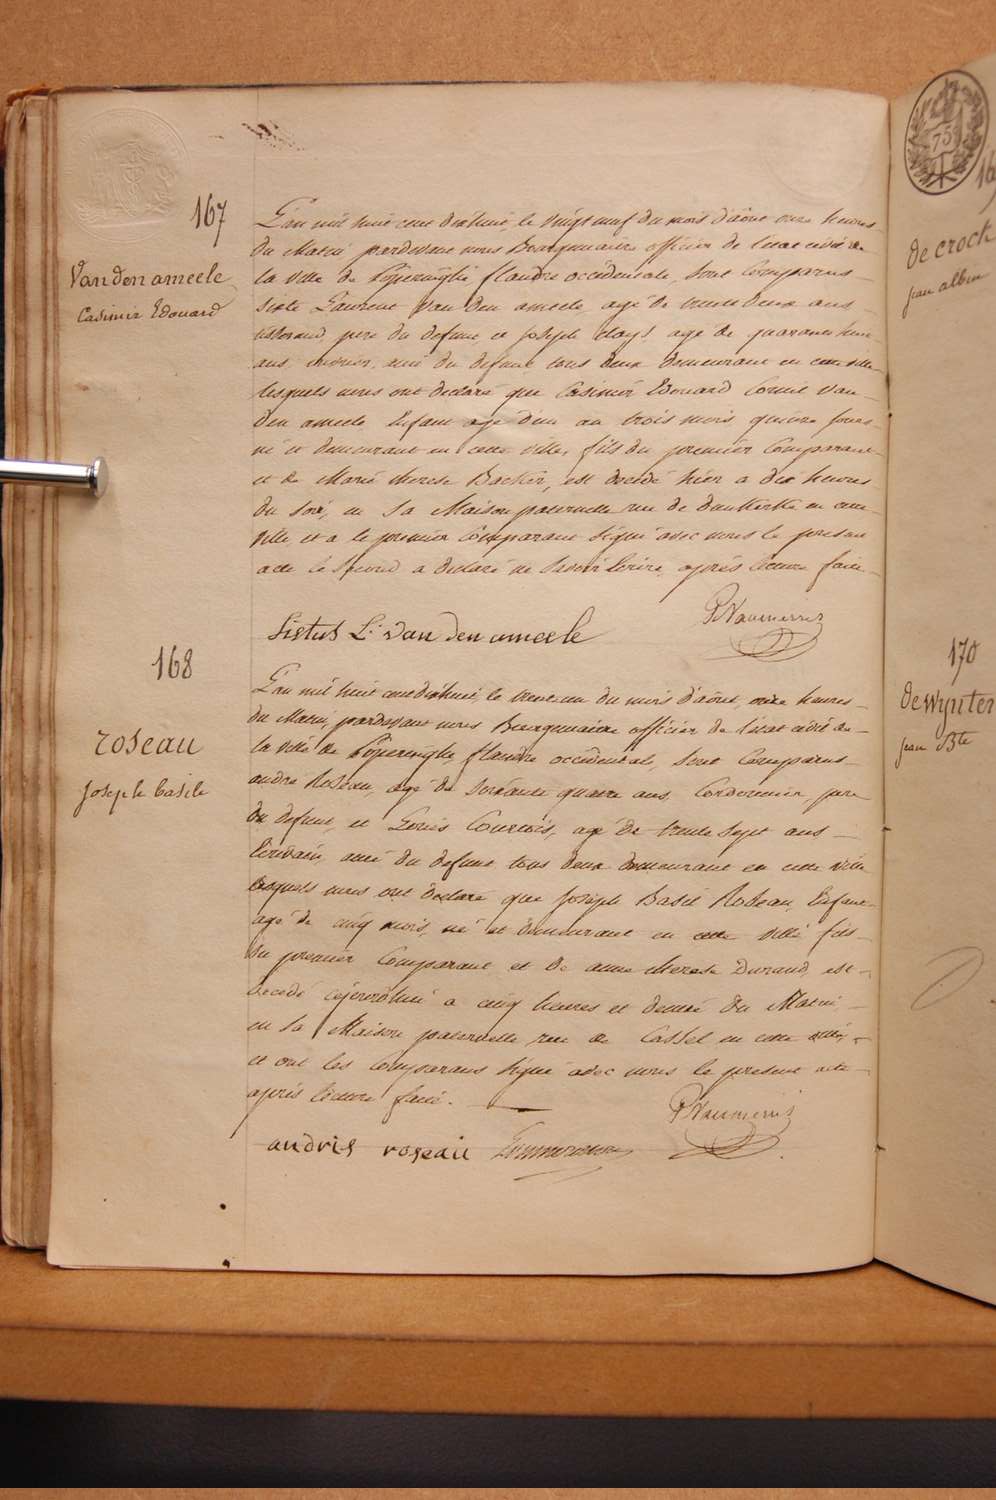 167
Van den ameele
Casimir Edouard
L'an mil huit cent dixhuit, le vingt neuf du mois d'aôut onze heures
du Matin pardevant nous Bourgmaitre officier de l'état civil de
la ville de Poperinghe flandre occidentale, sont Comparus
Sixte Laurent Van den ameele agé de trente deux ans
père du defunt et Joseph Clays agé de quarante huit
ans, ami du defunt tous deux demeurant en cette ville
lesquels nous ont declaré que Casimir Edouard Cornil Van
den ameele Enfant agé d'un an trois mois quinze jours
né et demeurant en cette ville, fils du premier Comparant
et de Marie therese Backer, est decedé hier a dix heures
du Soir, en Sa Maison paternelle rue de dunkerke en cette
ville, et a le premier Comparant Signé avec nous le present
acte le Second a declaré ne Savoir Ecrire, après lecture faite
Sistus L: Van den ameele
168
roseau
Joseph basile
L'an mil huit cent dixhuit, le trente un du mois d'aôut, onze heures
du Matin, pardevant nous Bourgmaitre officier de l'état civil de
la ville de Poperinghe flandre occidentale, sont Comparus
andre Roseau, agé de soixante quatre ans, Cordonnier, père
du defunt, et Louis Courtois, agé de trente Sept ans
Ecrivain, ami du defunt tous deux demeurant en cette ville
lesquels nous ont declaré que Joseph Basil Roseau, Enfant
agé de cinq mois, né et demeurant en cette ville fils
du premier Comparant et de anne therese Durand, est
decedé cejourd'hui a cinq heures et demie du Matin,
en Sa Maison paternelle, rue de Cassel en cette ville,
et ont les Comparans Signé avec nous le present acte
après lecture faite.
andris roseau
75
16
de crock
jean albin
170
de wynter
jean Bte